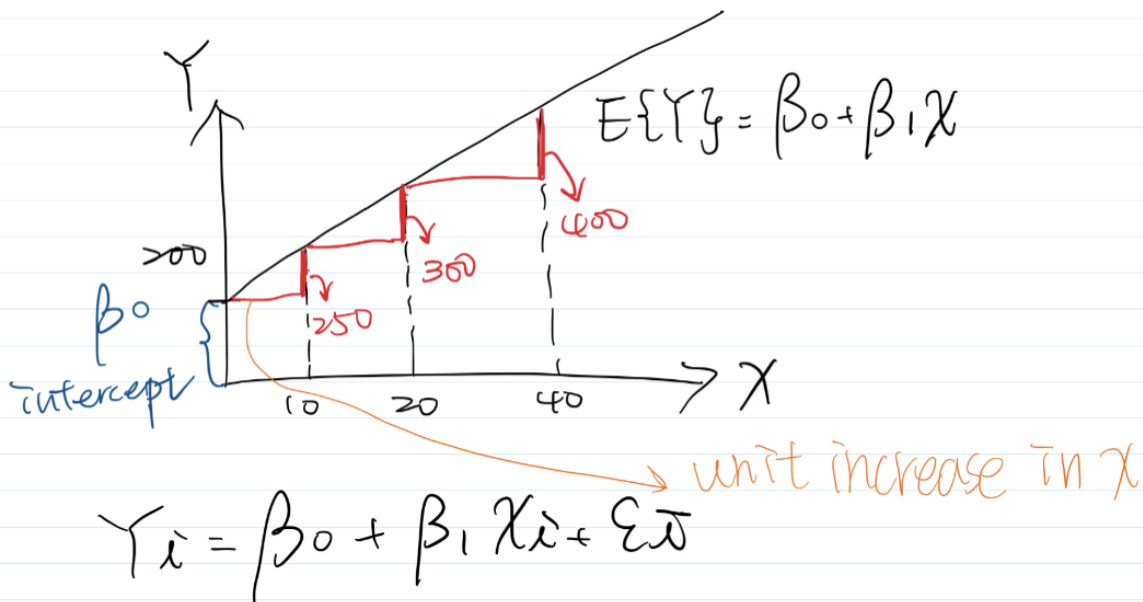 Y
E{Y} = β0 + β1X
200
400
300
β0
250
intercept
10 20 40 X
unit increase in X
Yi = β0 + β1Xi + εi